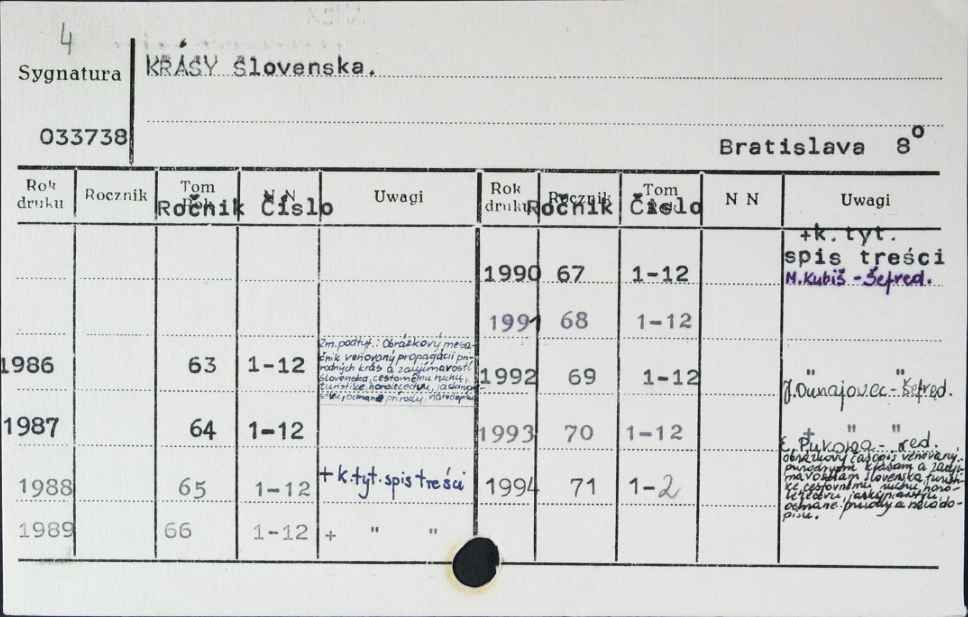 4
Sygnatura
KRÁSY Slovenska.
033738
Bratislava 8°
Rok druku Rocznik Tom N N Uwagi Rok druku Rocznik Tom N N Uwagi
Ročnik Číslo Ročnik Číslo
+k. tyt.
spis treści
1990 67 1-12
M. Kubiš - Šefred.
1991 68 1-12
Zm. podtyt.: Obrázkový mesa-
čník venovaný propagácii prí-
rodných krás a zaujímavostí
Slovenska, cestovnému ruchu,
turistike, horolezectvu,
ochrane prírody,
1986 63 1-12
1992 69 1-12 " "
J. Dunajovec - Šefred.
1987 64 1-12
1993 70 1-12 + " "
red.
obrázkový časopis venovaný
prírodným krásam a zauj-
mavostiam Slovenska turisti-
ke cestovnému ruchu horo-
lezectvu,
ochrane prírody a národo-
pisu.
1988 65 1-12 + k. tyt. spis treści
1994 71 1-2
1989 66 1-12 + " "